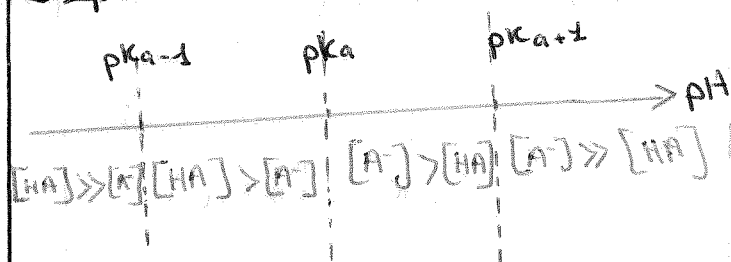 pKa-1 pKa pKa+1
pH
[HA]>>[A-] [HA]>[A-] [A-]>[HA] [A-]>>[HA]